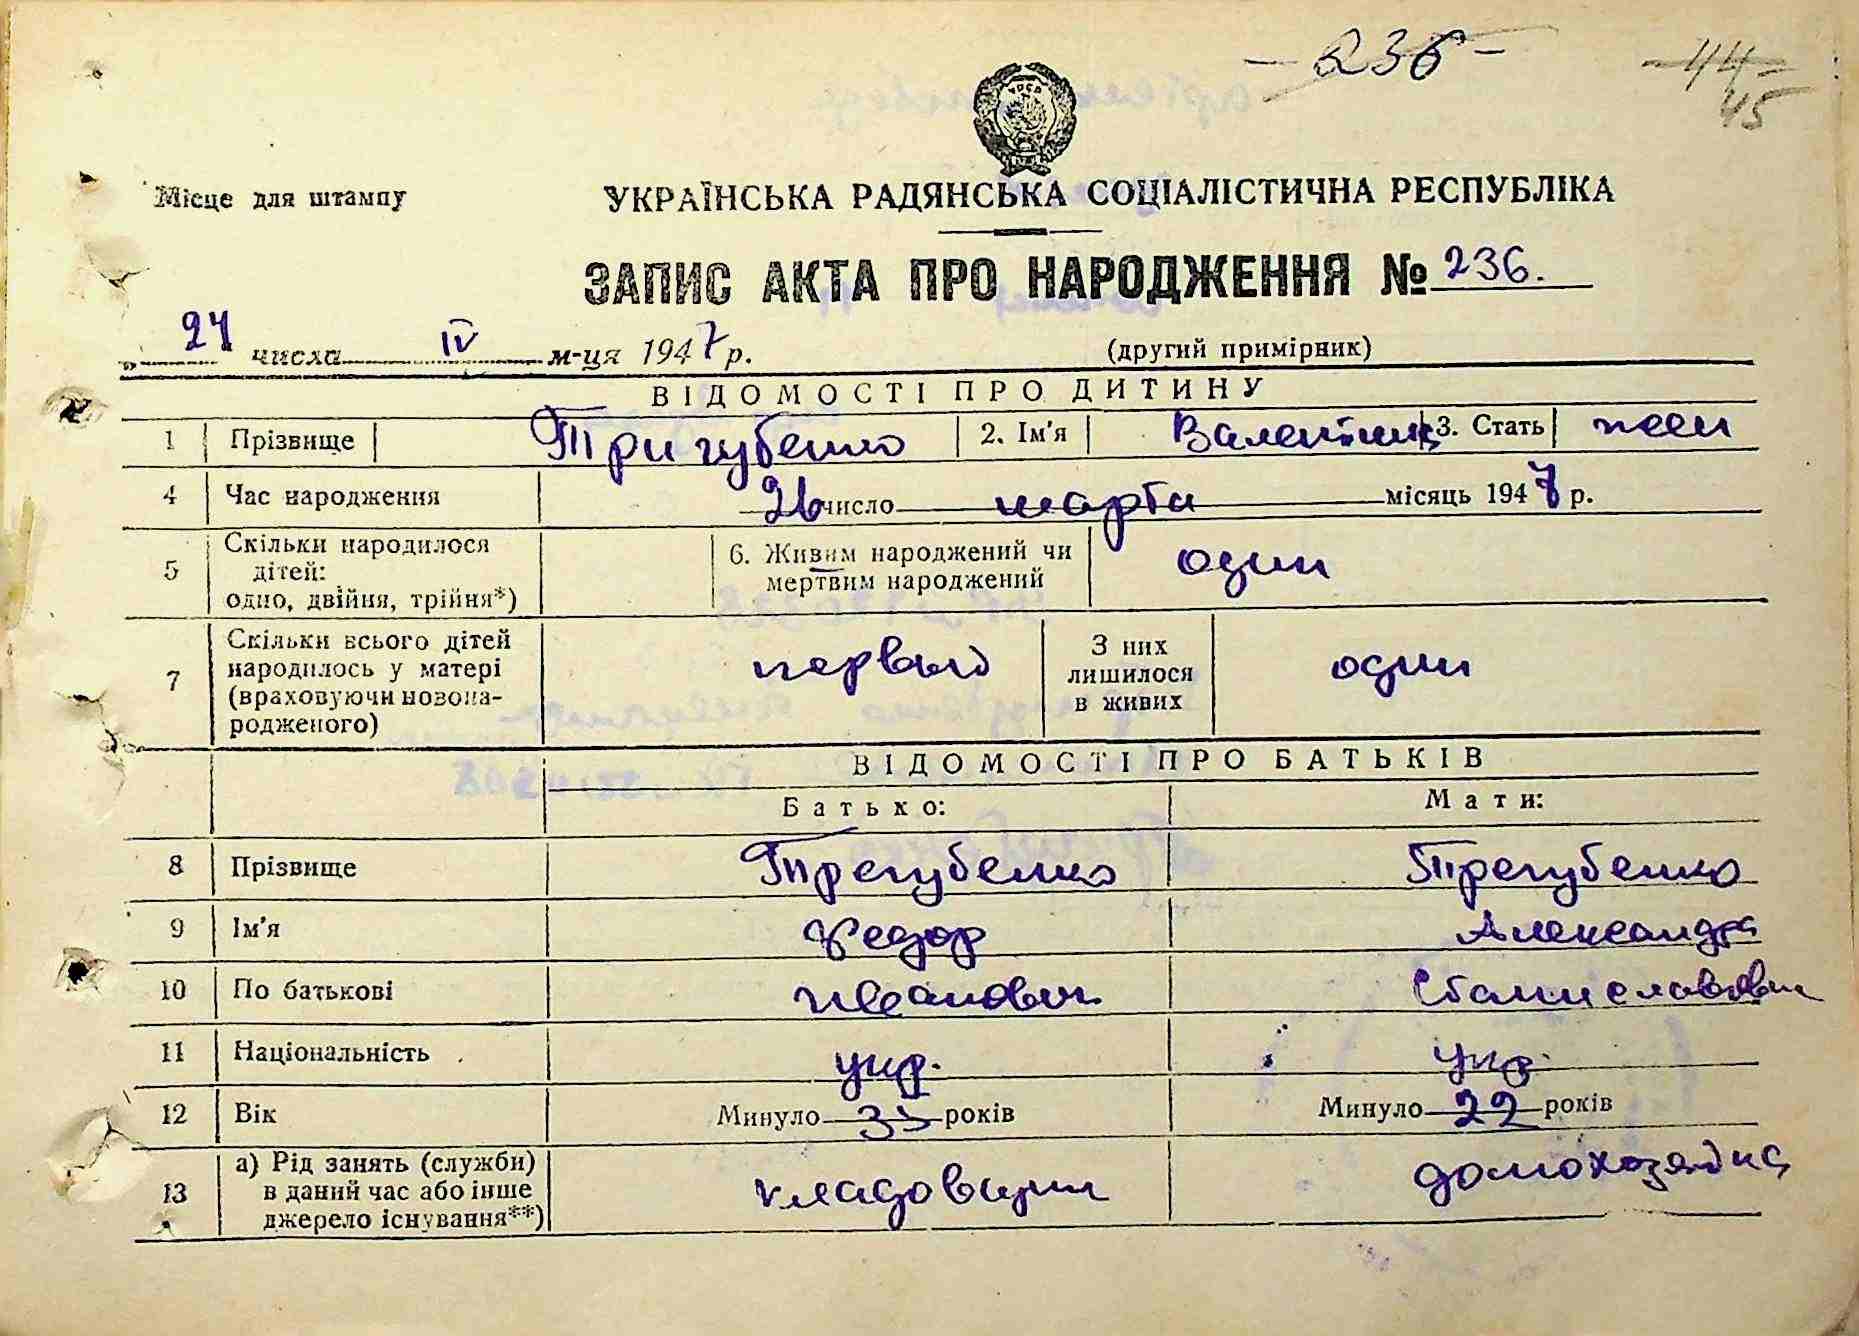 - 236 -
- 44 -
45
УРСР
Місце для штампу
УКРАЇНСЬКА РАДЯНСЬКА СОЦІАЛІСТИЧНА РЕСПУБЛІКА
ЗАПИС АКТА ПРО НАРОДЖЕННЯ № 236.
„ 24 числа IV м-ця 1947 р. (другий примірник)
ВІДОМОСТІ ПРО ДИТИНУ
1 Прізвище Тригубенко 2. Ім'я Валентина 3. Стать жен
4 Час народження 26 число марта місяць 1947 р.
5 Скільки народилося дітей: одно, двійня, трійня*) 6. Живим народжений чи мертвим народжений один
7 Скільки всього дітей народилось у матері (враховуючи новонародженого) первый З них лишилося в живих один
ВІДОМОСТІ ПРО БАТЬКІВ
Батько: Мати:
8 Прізвище Трегубенко Трегубенко
9 Ім'я Федор Александра
10 По батькові Иванович Станиславовна
11 Національність укр. укр.
12 Вік Минуло 33 років Минуло 22 років
13 а) Рід занять (служби) в даний час або інше джерело існування**) кладовщик домохозяйка